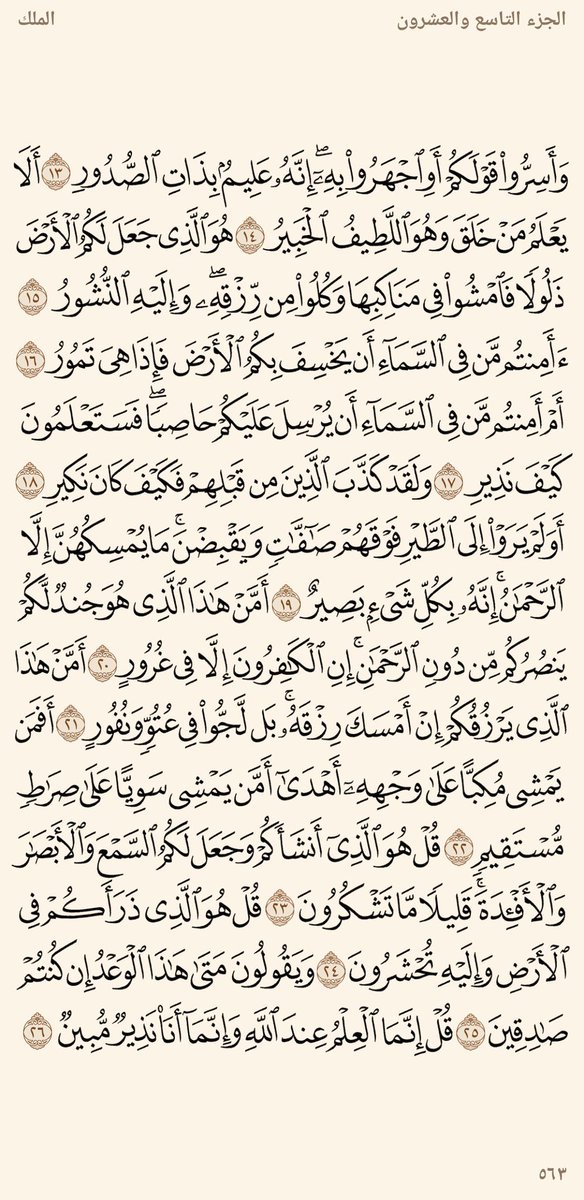 الجزء التاسع والعشرون
الملك
وَأَسِرُّواْ قَوْلَكُمْ أَوِ ٱجْهَرُواْ بِهِۦٓۖ إِنَّهُۥ عَلِيمُۢ بِذَاتِ ٱلصُّدُورِ ١٣ أَلَا
يَعْلَمُ مَنْ خَلَقَ وَهُوَ ٱللَّطِيفُ ٱلْخَبِيرُ ١٤ هُوَ ٱلَّذِى جَعَلَ لَكُمُ ٱلْأَرْضَ
ذَلُولًا فَٱمْشُواْ فِى مَنَاكِبِهَا وَكُلُواْ مِن رِّزْقِهِۦۖ وَإِلَيْهِ ٱلنُّشُورُ ١٥
ءَأَمِنتُم مَّن فِى ٱلسَّمَآءِ أَن يَخْسِفَ بِكُمُ ٱلْأَرْضَ فَإِذَا هِىَ تَمُورُ ١٦
أَمْ أَمِنتُم مَّن فِى ٱلسَّمَآءِ أَن يُرْسِلَ عَلَيْكُمْ حَاصِبًاۖ فَسَتَعْلَمُونَ
كَيْفَ نَذِيرِ ١٧ وَلَقَدْ كَذَّبَ ٱلَّذِينَ مِن قَبْلِهِمْ فَكَيْفَ كَانَ نَكِيرِ ١٨
أَوَلَمْ يَرَوْاْ إِلَى ٱلطَّيْرِ فَوْقَهُمْ صَٰٓفَّٰتٍ وَيَقْبِضْنَۚ مَا يُمْسِكُهُنَّ إِلَّا
ٱلرَّحْمَٰنُۚ إِنَّهُۥ بِكُلِّ شَىْءِۭ بَصِيرٌ ١٩ أَمَّنْ هَٰذَا ٱلَّذِى هُوَ جُندٌ لَّكُمْ
يَنصُرُكُم مِّن دُونِ ٱلرَّحْمَٰنِۚ إِنِ ٱلْكَٰفِرُونَ إِلَّا فِى غُرُورٍ ٢٠ أَمَّنْ هَٰذَا
ٱلَّذِى يَرْزُقُكُمْ إِنْ أَمْسَكَ رِزْقَهُۥۚ بَل لَّجُّواْ فِى عُتُوٍّ وَنُفُورٍ ٢١ أَفَمَن
يَمْشِى مُكِبًّا عَلَىٰ وَجْهِهِۦٓ أَهْدَىٰٓ أَمَّن يَمْشِى سَوِيًّا عَلَىٰ صِرَٰطٍ
مُّسْتَقِيمٍ ٢٢ قُلْ هُوَ ٱلَّذِىٓ أَنشَأَكُمْ وَجَعَلَ لَكُمُ ٱلسَّمْعَ وَٱلْأَبْصَٰرَ
وَٱلْأَفْـِٔدَةَۚ قَلِيلًا مَّا تَشْكُرُونَ ٢٣ قُلْ هُوَ ٱلَّذِى ذَرَأَكُمْ فِى
ٱلْأَرْضِ وَإِلَيْهِ تُحْشَرُونَ ٢٤ وَيَقُولُونَ مَتَىٰ هَٰذَا ٱلْوَعْدُ إِن كُنتُمْ
صَٰدِقِينَ ٢٥ قُلْ إِنَّمَا ٱلْعِلْمُ عِندَ ٱللَّهِ وَإِنَّمَآ أَنَا۠ نَذِيرٌ مُّبِينٌ ٢٦
٥٦٣